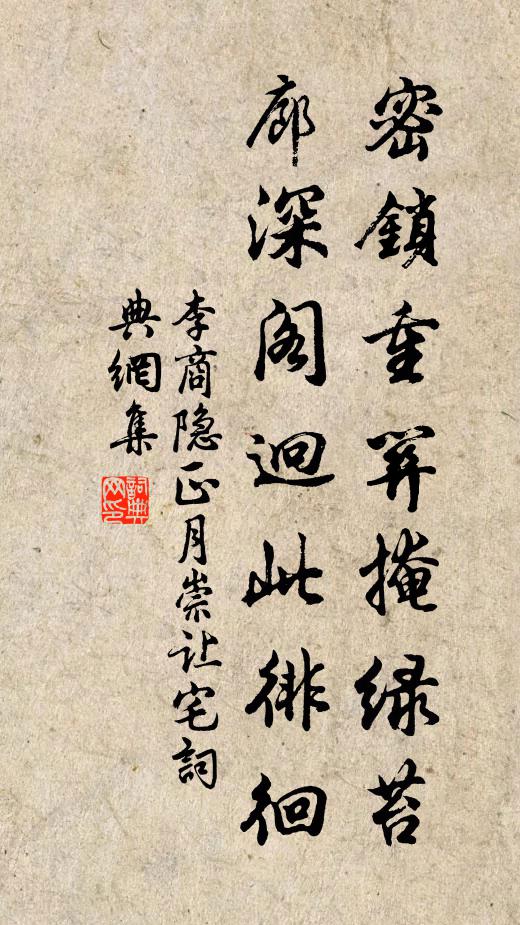 密鎖重關掩綠苔
廊深閣迥此徘徊
李商隐正月崇让宅詞
典網集
詞典
网印